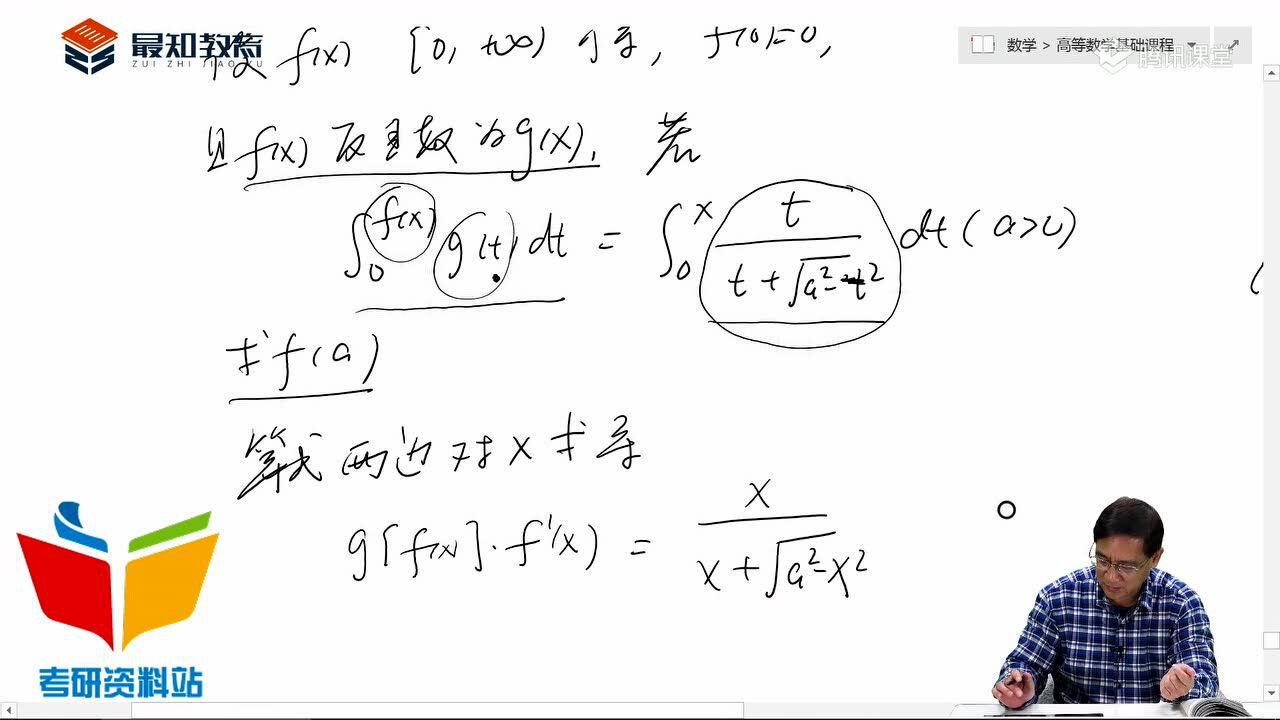 最知教育
ZUI ZHI JIAO YU
数学 > 高等数学基础课程
腾讯课堂
设 f(x) [0, +∞) 可导, f(0)=0,
且 f(x) 反函数为 g(x). 若
∫₀^{f(x)} g(t) dt = ∫₀^x t/(t+√(a²-t²)) dt (a>0)
求 f(a)
等式两边对 x 求导
g[f(x)]·f'(x) = x/(x+√(a²-x²))
考研资料站